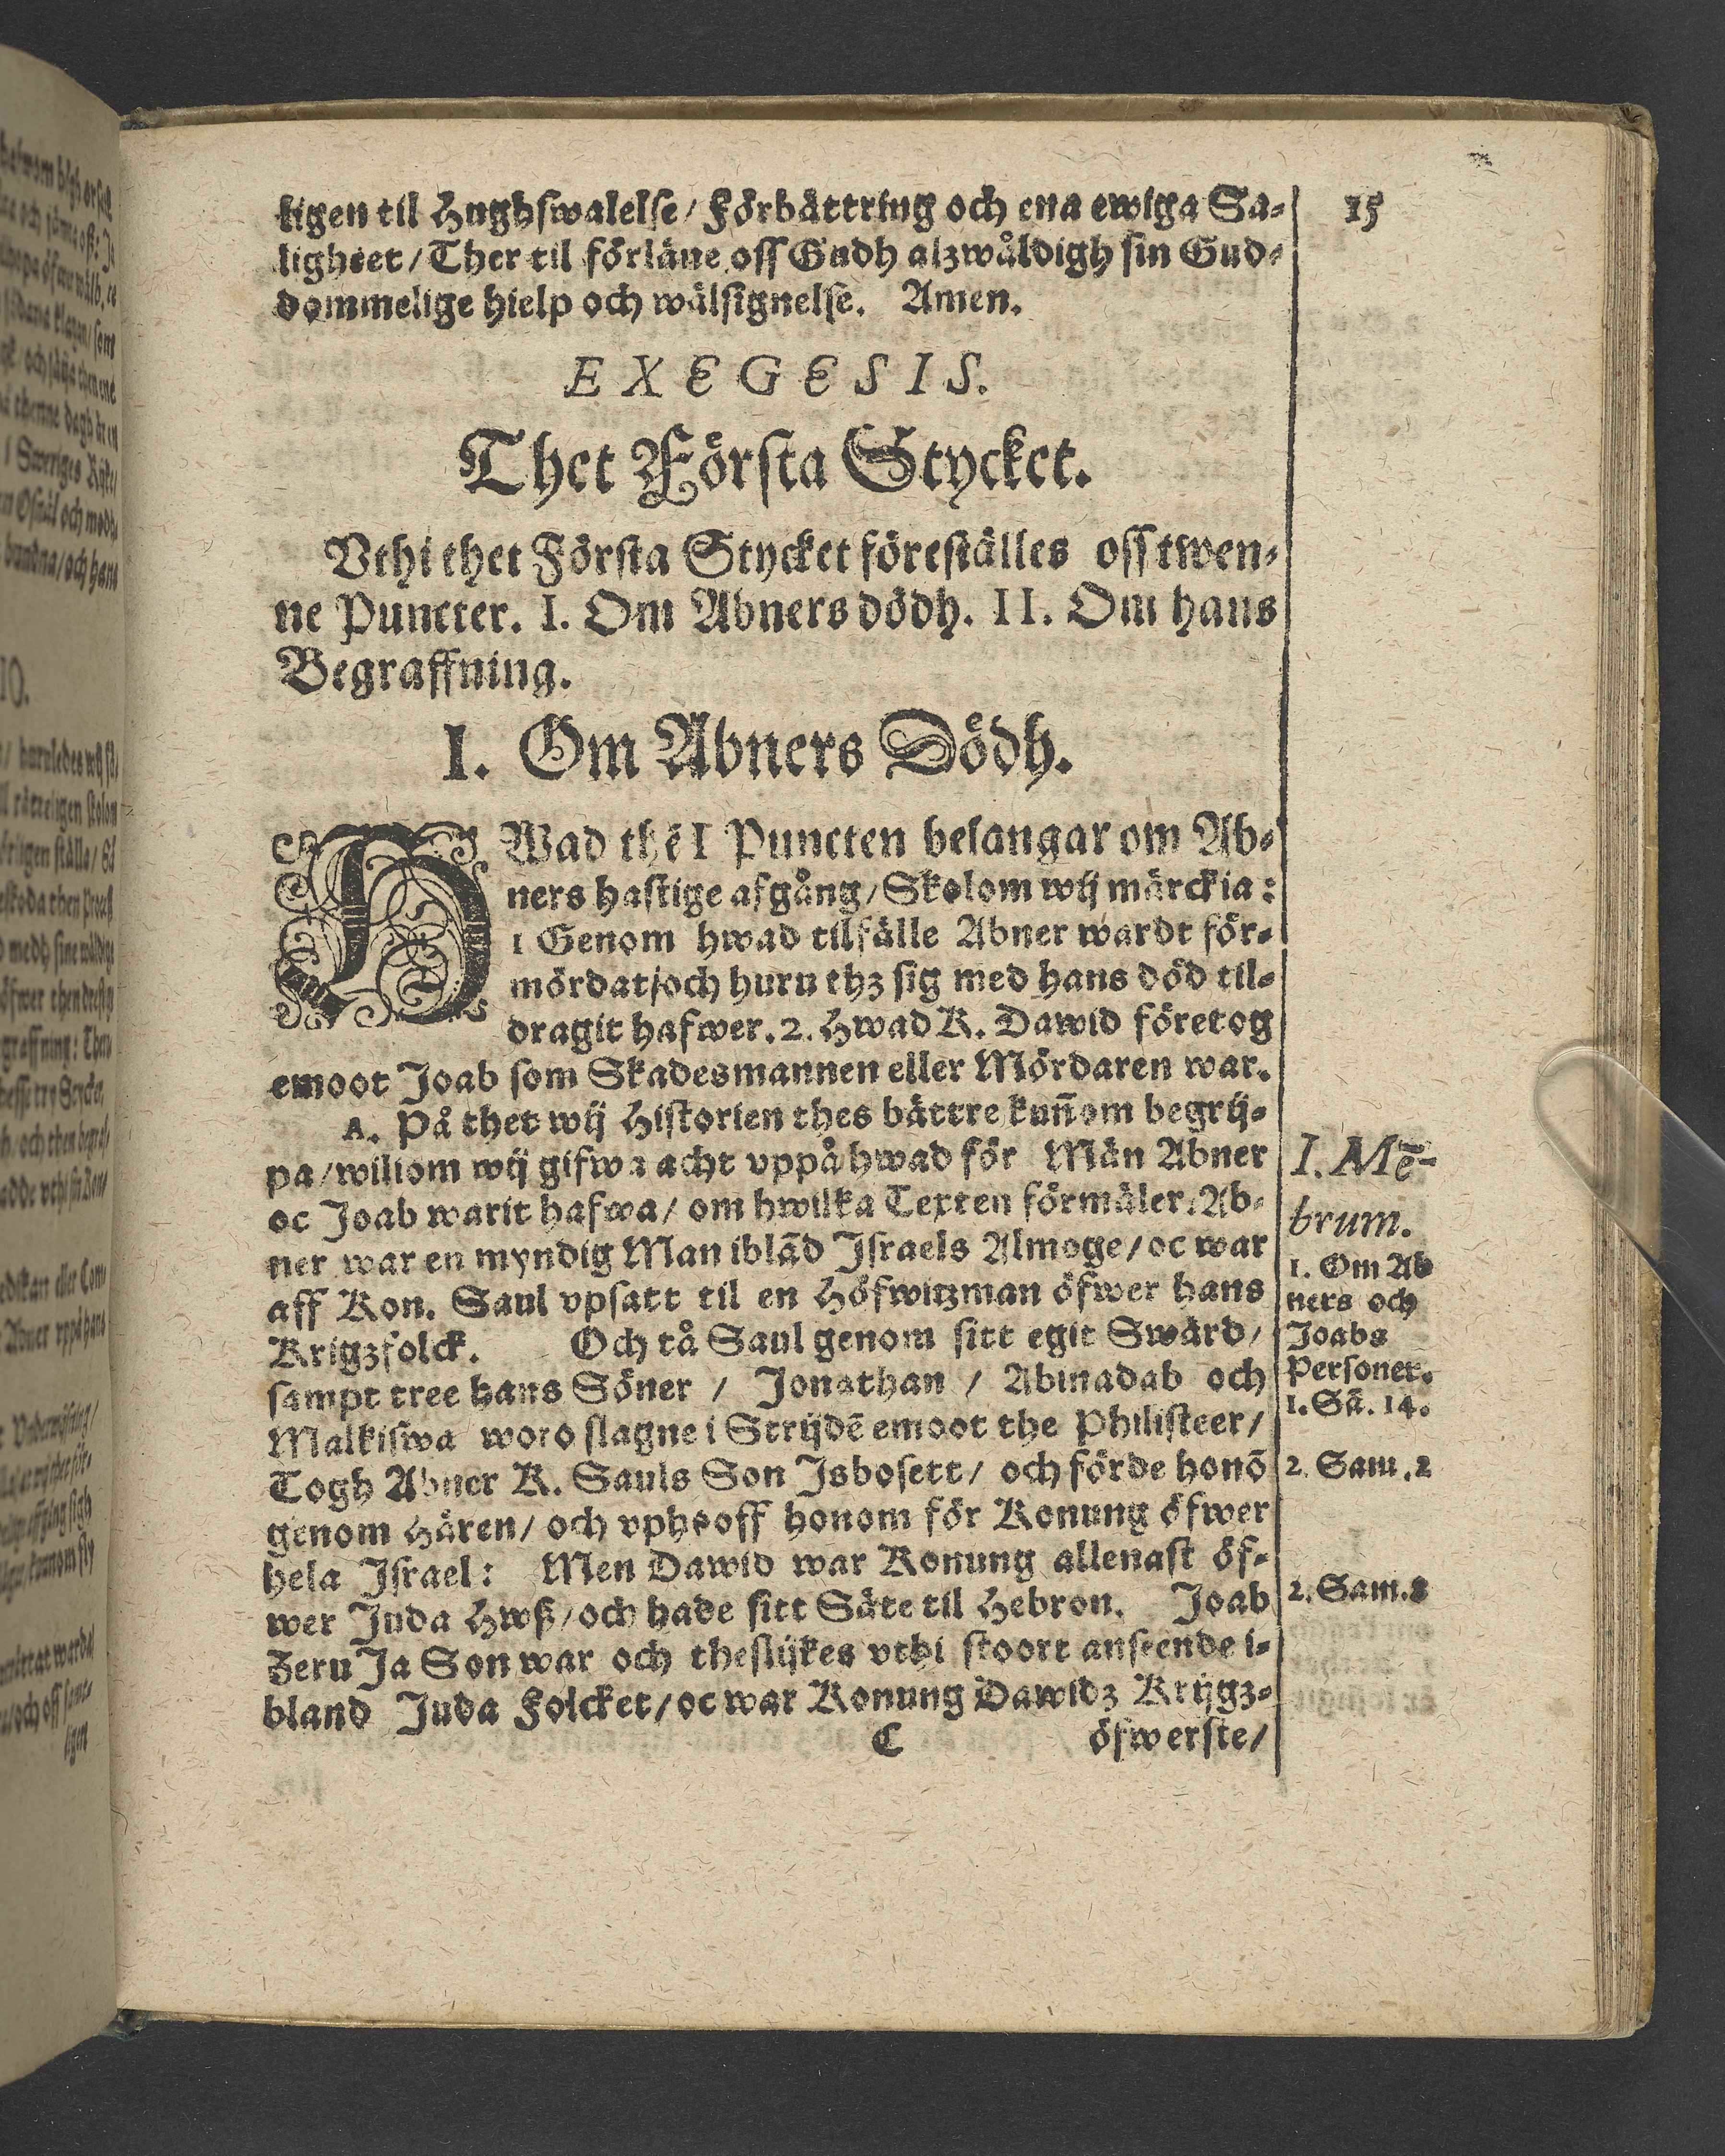 15
ligen til Hughswalelse/ Förbättring och ena ewiga Sa-
ligheet/ Ther til förläne oss Gudh alzwåldigh sin Gud-
dommelige hielp och wälsignelse. Amen.
EXEGESIS.
Thet Första Stycket.
Vthi thet Första Stycket föreställes oss twen-
ne Puncter. I. Om Abners dödh. II. Om hans
Begraffning.
I. Om Abners Dödh.
HWad thē I Puncten belangar om Ab-
ners hastige afgång/ Skolom wij märckia:
1 Genom hwad tilfälle Abner wardt för-
mördat/och huru thz sig med hans död til-
dragit hafwer. 2. Hwad K. Dawid företog
emoot Joab som Skadesmannen eller Mördaren war.
A. På thet wij Historien thes bättre kun̄om begrij-
pa/wiliom wij gifwa acht vppå hwad för Män Abner
oc Joab warit hafwa/ om hwilka Texten förmäler. Ab-
ner war en myndig Man iblād Israels Almoge/ oc war
aff Kon. Saul vpsatt til en Höfwitzman öfwer hans
Krigzfolck. Och tå Saul genom sitt egit Swärd/
sampt tree hans Söner / Jonathan / Abinadab och
Malkiswa woro slagne i Strijdē emoot the Philisteer/
Togh Abner K. Sauls Son Isbosett/ och förde honō
genom Hären/ och vphooff honom för Konung öfwer
hela Israel: Men Dawid war Konung allenast öf-
wer Juda Hwß/och hade sitt Säte til Hebron. Joab
Zeru Ja Son war och theslijkes vthi stoort anseende i-
bland Juda Folcket/oc war Konung Dawidz Krijgz-
C öfwerste/
I. Mē-
brum.
1. Om Ab
ners och
Joabs
Personer.
1. Sā. 14.
2. Sam. 2
2. Sam. 2